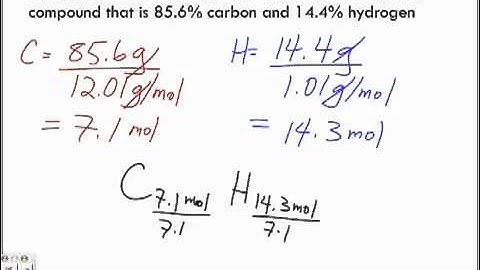 compound that is 85.6% carbon and 14.4% hydrogen
C = 85.6g / 12.01g/mol
H = 14.4g / 1.01g/mol
= 7.1 mol
= 14.3 mol
C 7.1mol / 7.1 H 14.3mol / 7.1